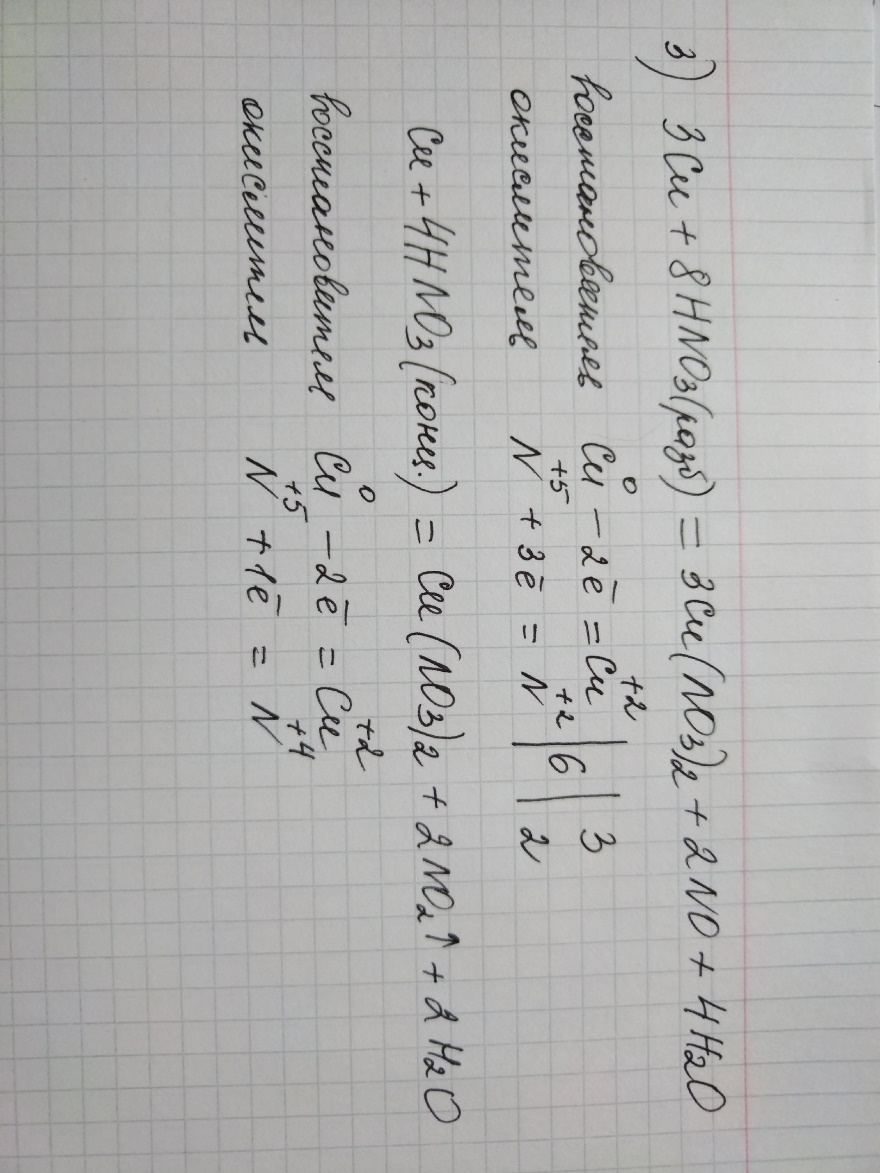 3) 3Cu + 8HNO₃(разб) = 3Cu(NO₃)₂ + 2NO + 4H₂O
восстановитель Cu⁰ - 2ē = Cu⁺² | 6 | 3
окислитель N⁺⁵ + 3ē = N⁺² | | 2
Cu + 4HNO₃(конц.) = Cu(NO₃)₂ + 2NO₂↑ + 2H₂O
восстановитель Cu⁰ - 2ē = Cu⁺²
окислитель N⁺⁵ + 1ē = N⁺⁴